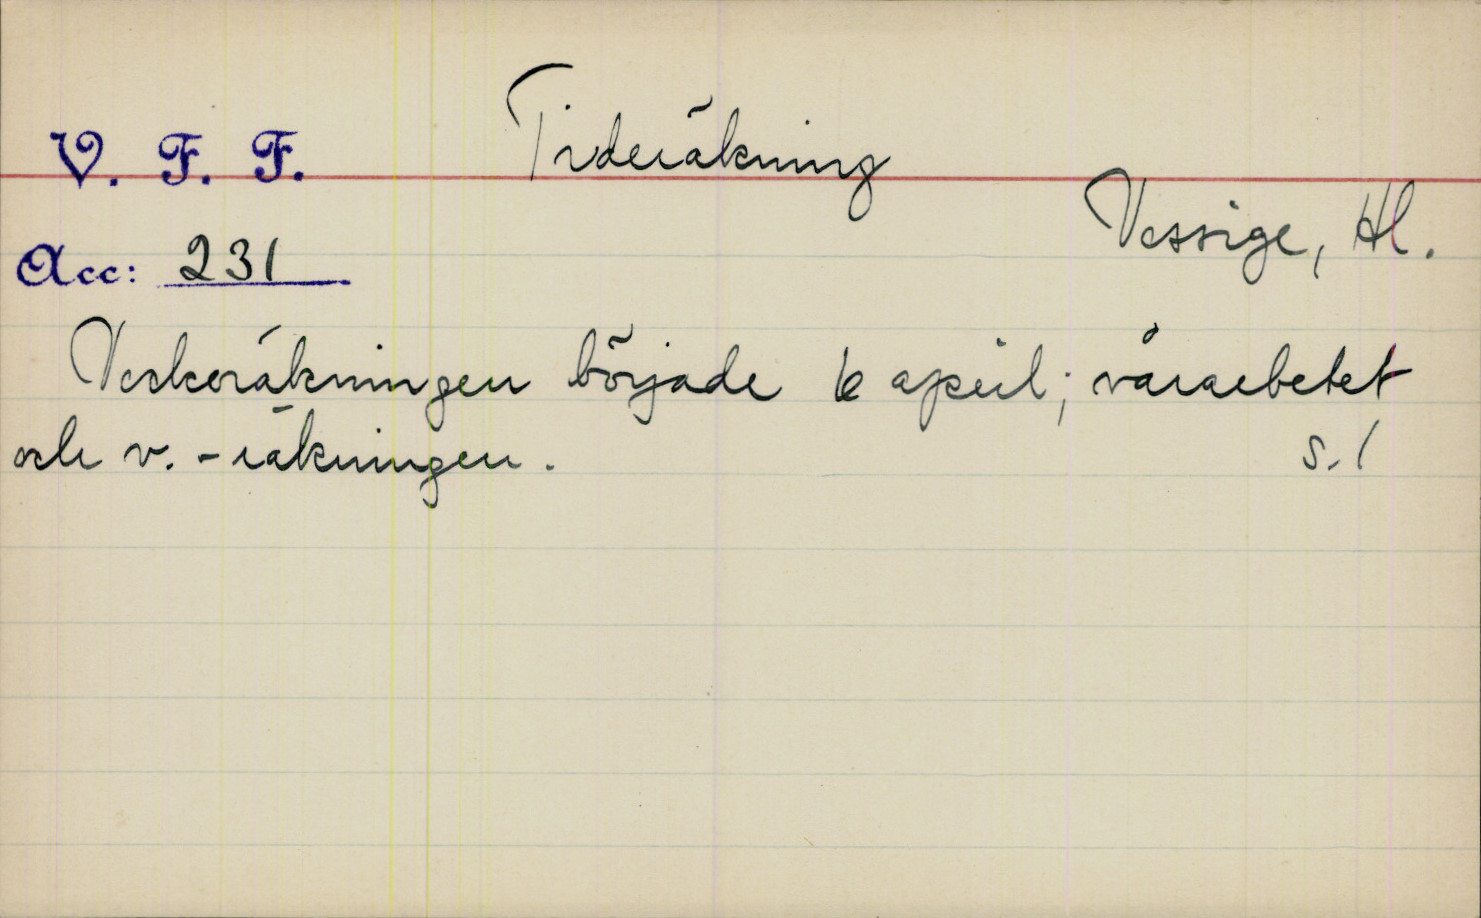 V. F. F.
Tideräkning
Vessige, Hl.
Acc: 231
Veckoräkningen började 6 april; vårarbetet
och v.-räkningen. s. 1